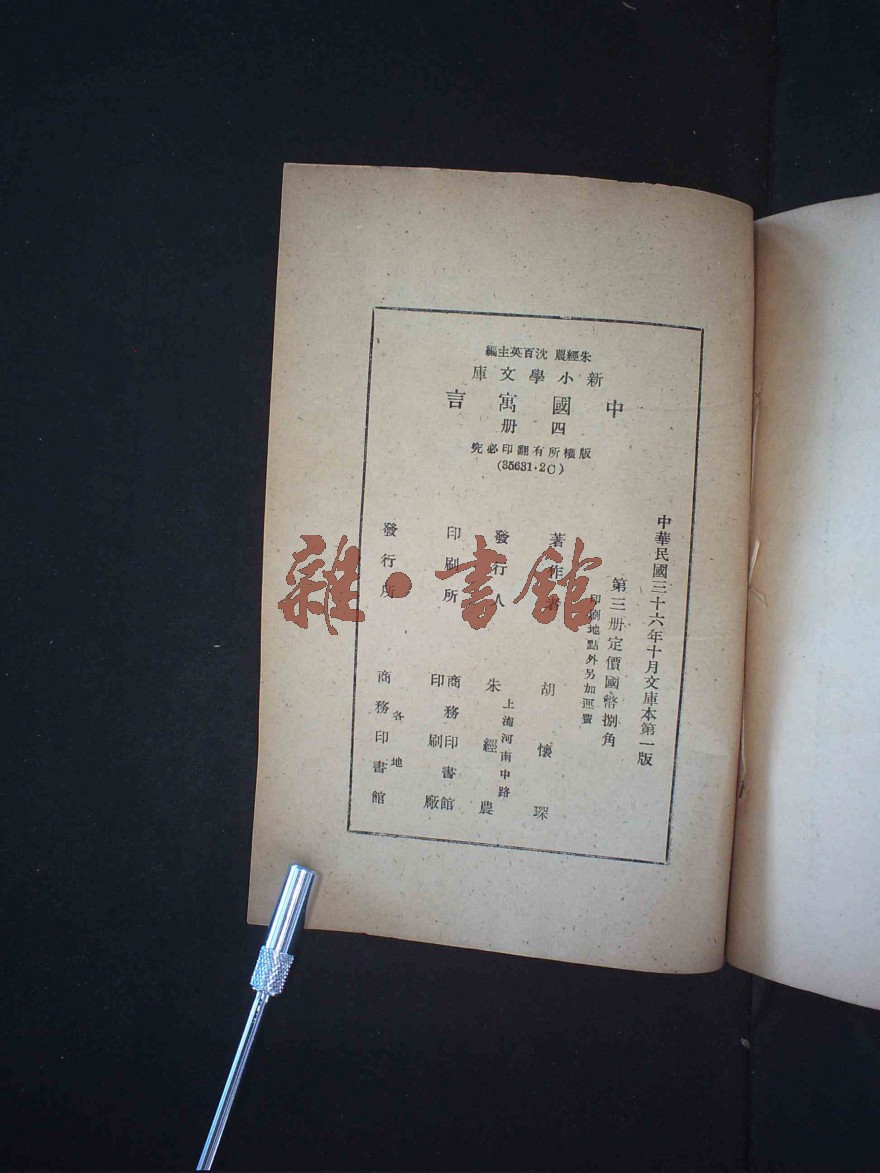 朱經農 沈百英主編
新小學文庫
中國寓言
四册
版權所有翻印必究
(35631·2C)
中華民國三十六年十月文庫本第一版
第三册定價國幣捌角
印刷地點外另加運費
著作者 胡懷琛
發行人 朱經農
上海河南中路
印刷所 商務印書館
印刷廠
發行所 各地
商務印書館
雜·書館